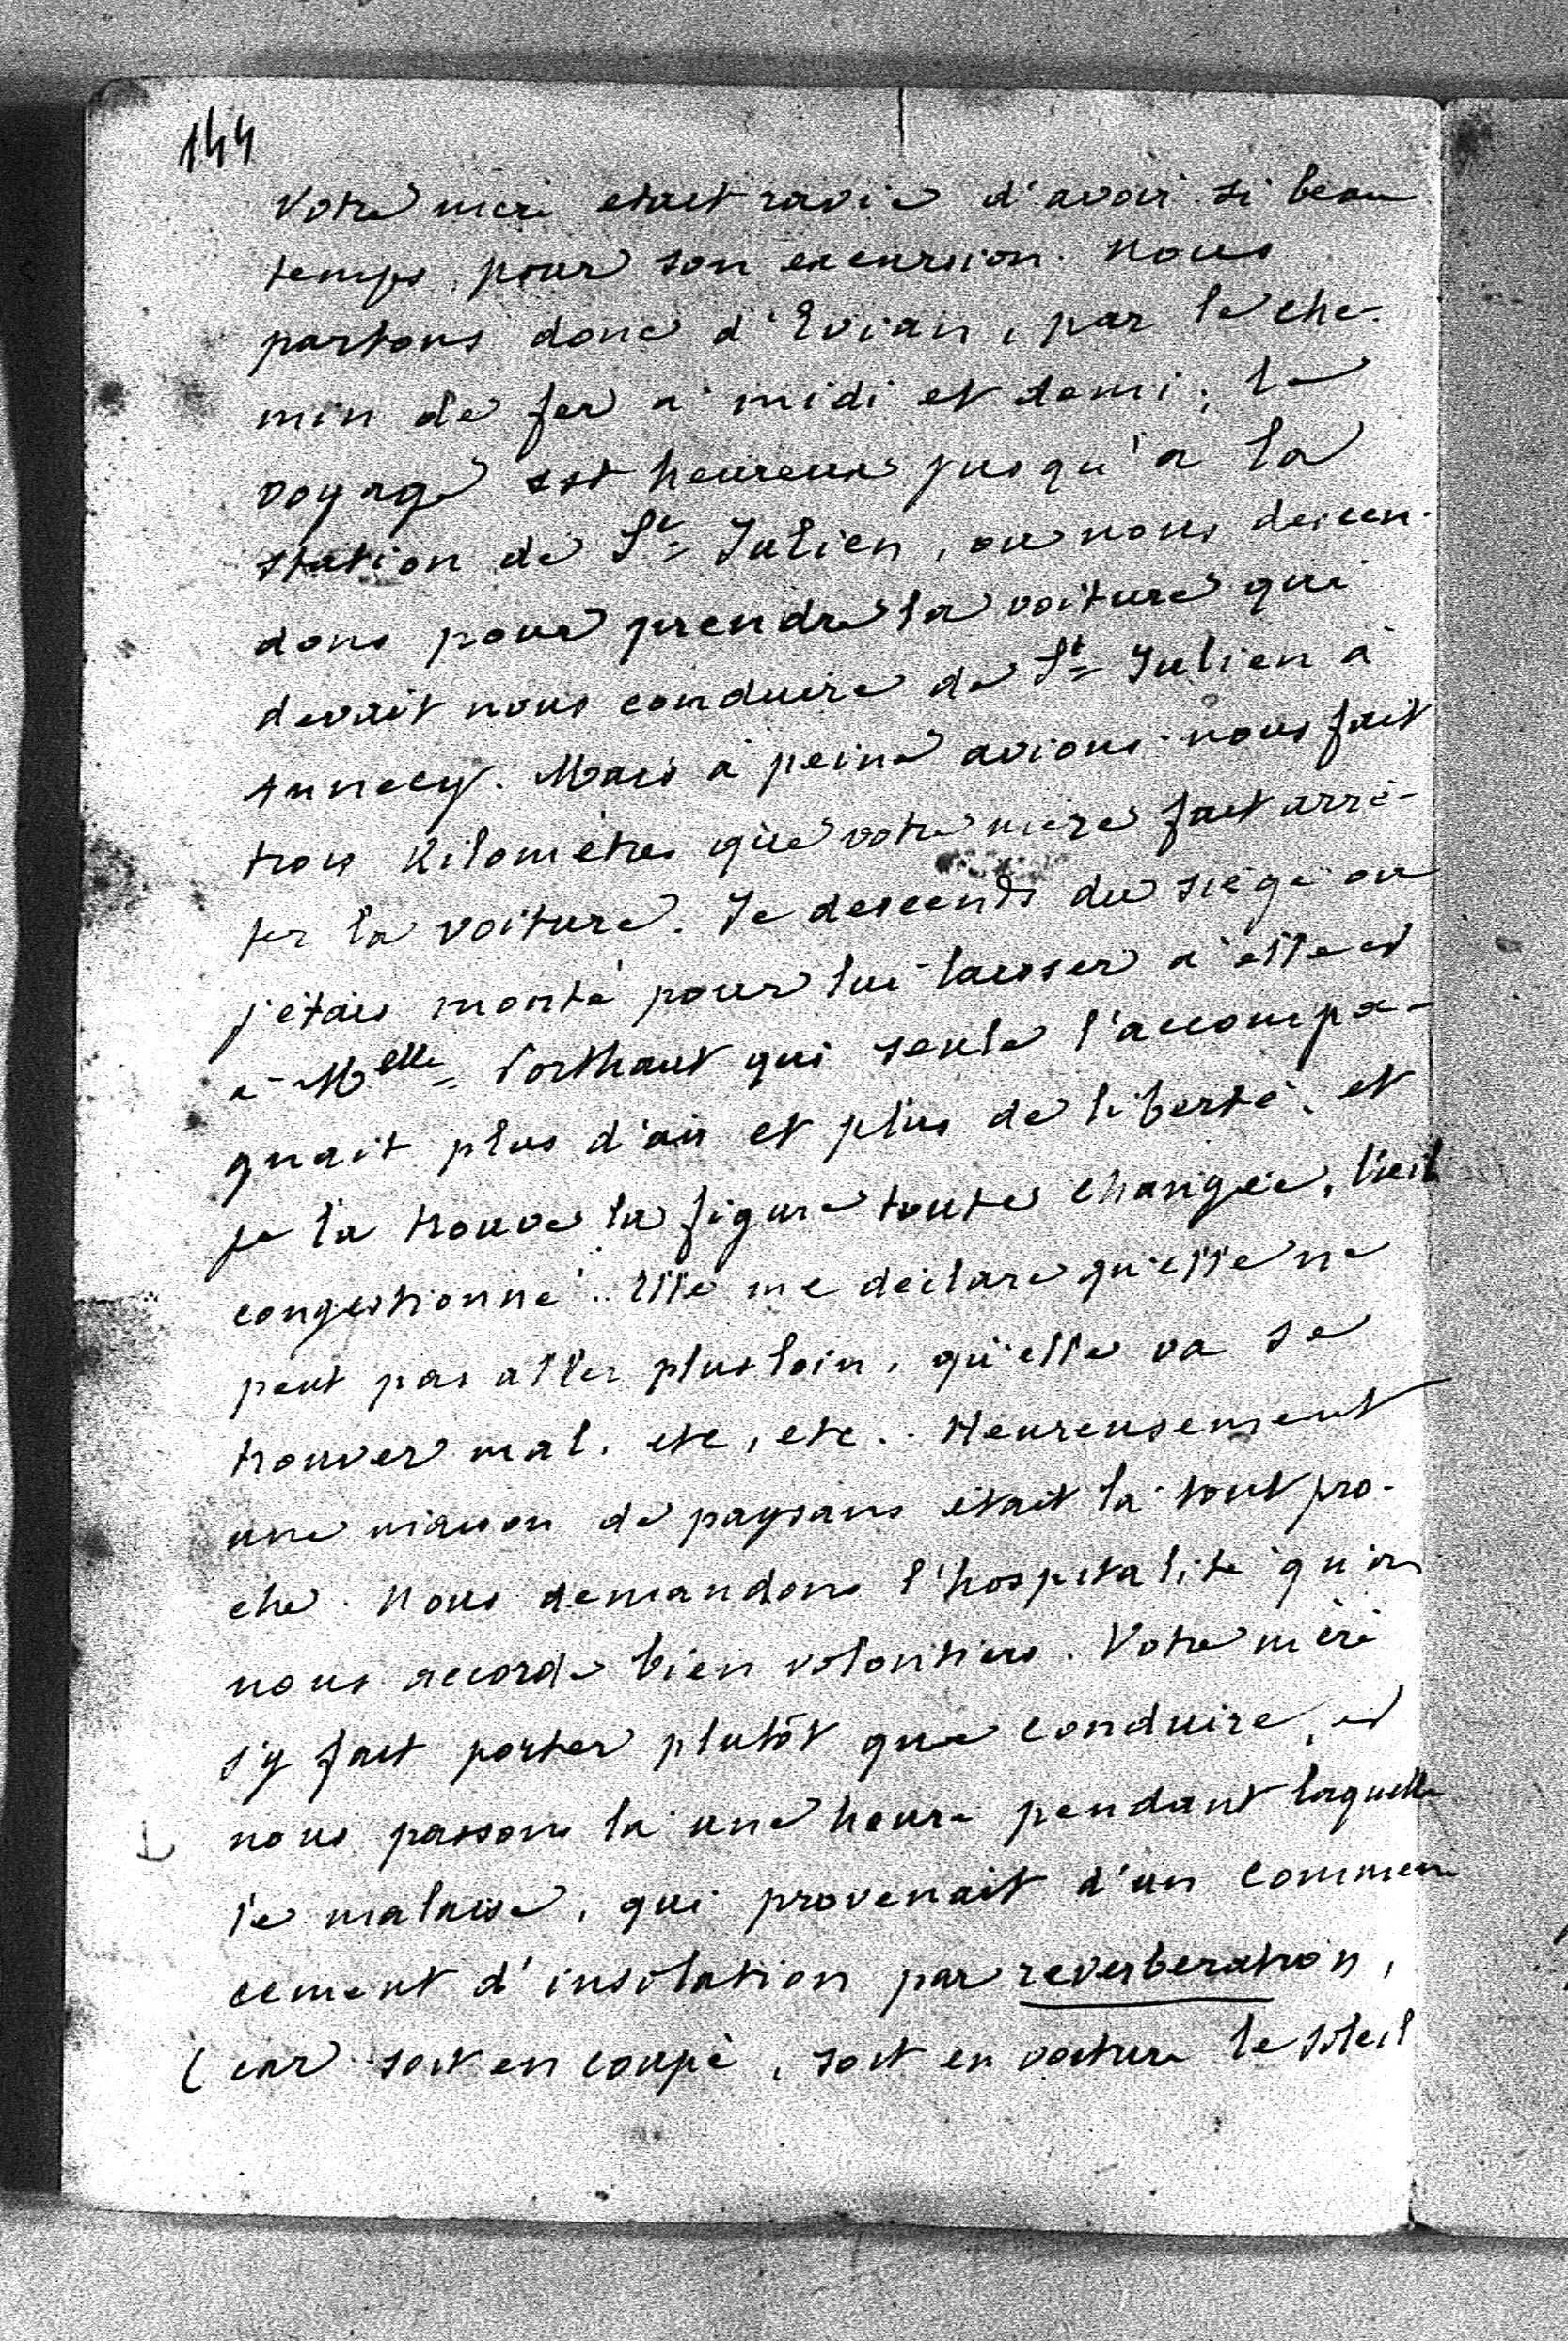 144
Votre mère était ravie d'avoir si beau
temps pour son excursion. Nous
partons donc d'Evian, par le che-
min de fer à midi et demi; le
voyage est heureux jusqu'à la
station de St Julien, où nous descen-
dons pour prendre la voiture qui
devait nous conduire de St Julien à
Annecy. Mais à peine avions-nous fait
trois kilomètres que votre mère fait arrê-
ter la voiture. Je descends du siège où
j'étais monté pour lui laisser à elle et
à Melle qui seule l'accompa-
gnait plus d'air et plus de liberté, et
je la trouve la figure toute changée, l'œil
congestionné. Elle me déclare qu'elle ne
peut pas aller plus loin, qu'elle va se
trouver mal, etc, etc.. Heureusement
une maison de paysans était là tout pro-
che. Nous demandons l'hospitalité qu'on
nous accorde bien volontiers. Votre mère
s'y fait porter plutôt que conduire, et
nous passons là une heure pendant laquelle
le malaise, qui provenait d'un commen
cement d'insolation par reverberation,
(car soit en coupé, soit en voiture le soleil